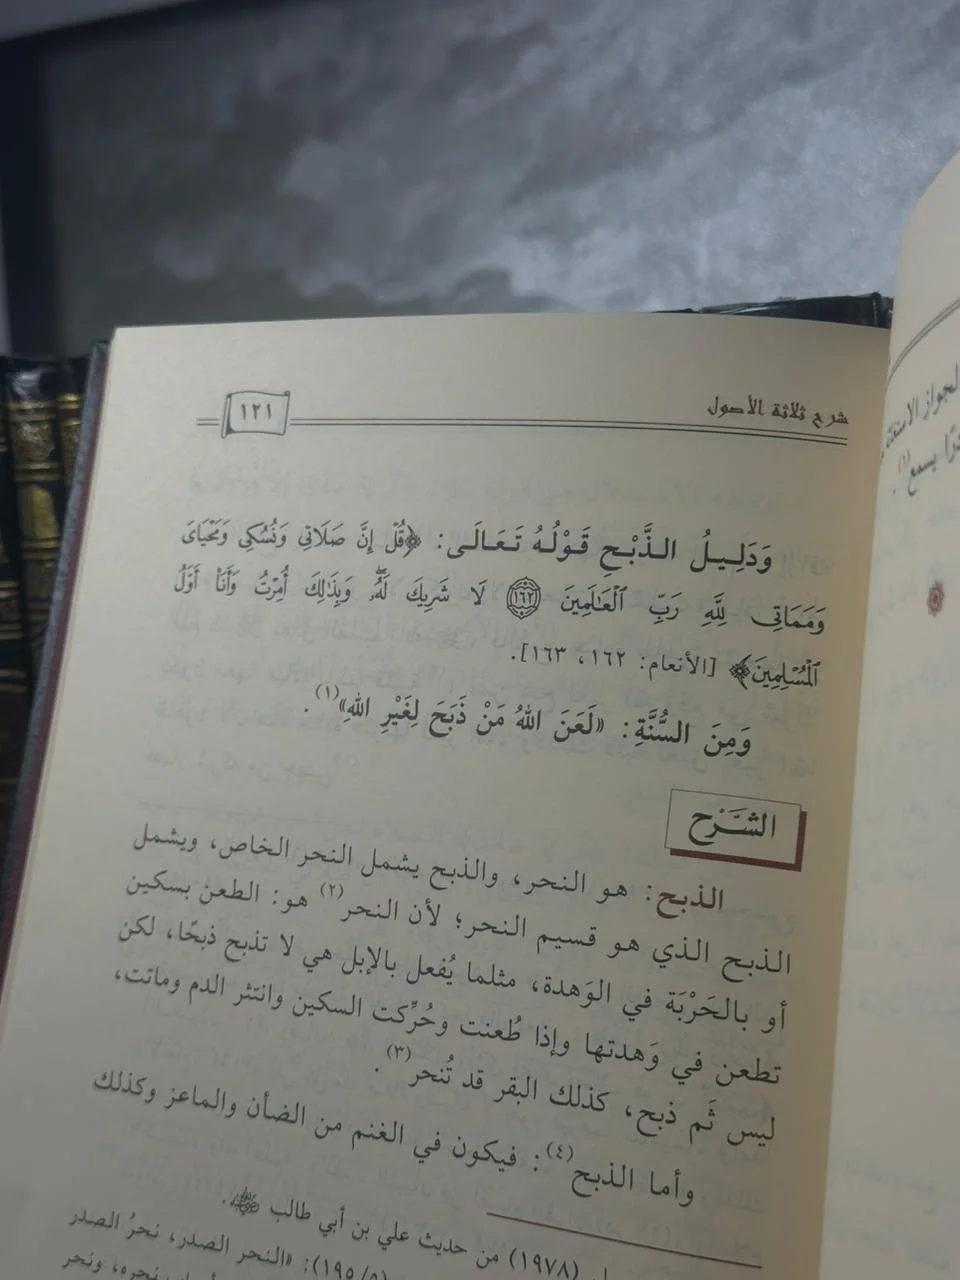 شرح ثلاثة الأصول
١٢١
وَدَلِيلُ الذَّبْحِ قَوْلُهُ تَعَالَى: ﴿قُلْ إِنَّ صَلَاتِي وَنُسُكِي وَمَحْيَايَ
وَمَمَاتِي لِلَّهِ رَبِّ الْعَالَمِينَ ١٦٢ لَا شَرِيكَ لَهُ وَبِذَلِكَ أُمِرْتُ وَأَنَا أَوَّلُ
الْمُسْلِمِينَ﴾ [الأنعام: ١٦٢، ١٦٣].
وَمِنَ السُّنَّةِ: «لَعَنَ اللهُ مَنْ ذَبَحَ لِغَيْرِ اللهِ»(١).
الشَّرْح
الذبح: هو النحر، والذبح يشمل النحر الخاص، ويشمل
الذبح الذي هو قسيم النحر؛ لأن النحر(٢) هو: الطعن بسكين
أو بالحَرْبَة في الوَهدة، مثلما يُفعل بالإبل هي لا تذبح ذبحًا، لكن
تطعن في وَهدتها وإذا طُعنت وحُرِّكت السكين وانتثر الدم وماتت،
ليس ثَم ذبح، كذلك البقر قد تُنحر(٣).
وأما الذبح(٤): فيكون في الغنم من الضأن والماعز وكذلك
(١٩٧٨) من حديث علي بن أبي طالب ﷺ.
(١٩٥/٥): «النحر الصدر، نحرُ الصدر
نحره، ونحر
لجواز الاستغاثة
يسمع(١).